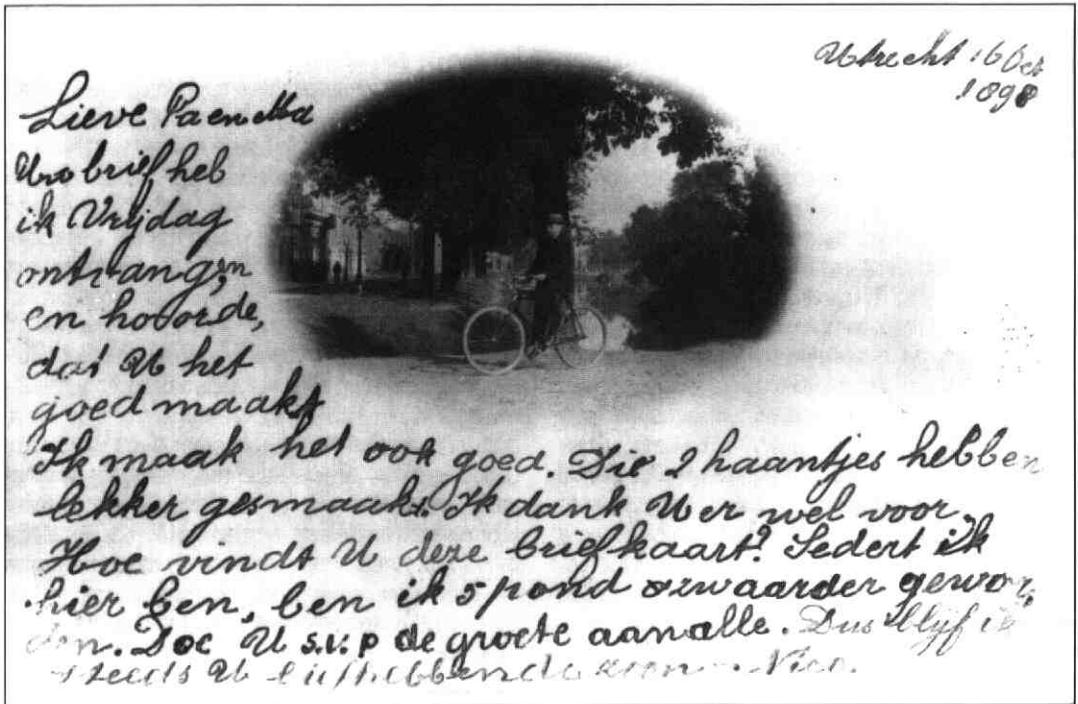 Utrecht 16 Oct
1898
Lieve Pa en Ma
Uw brief heb
ik Vrijdag
ontvangen
en hoorde,
dat U het
goed maakt
Ik maak het ook goed. Die 2 haantjes hebben
lekker gesmaakt. Ik dank U er wel voor.
Hoe vindt U deze briefkaart? Sedert ik
hier ben, ben ik 5 pond zwaarder gewor,
den. Doe U s.v.p de groete aan alle. Dus blijf ik
steeds U liefhebbende zoon Nico.